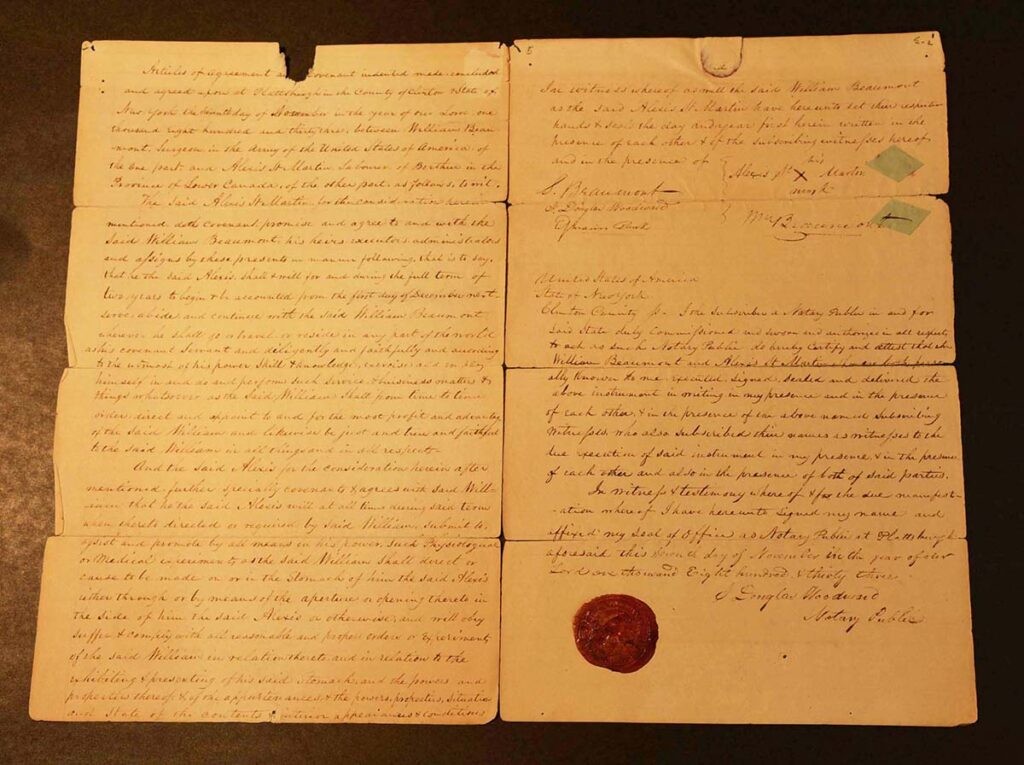 Articles of agreement an Covenant indented made, concluded
and agreed upon at Plattsburgh in the County of Clinton & State of
New York the Seventh day of November in the year of our Lord one
thousand eight hundred and thirty three, between William Beau-
mont, Surgeon in the Army of the United States of America, of
the one part and Alexis St. Martin Labourer of Berthier in the
Province of Lower Canada, of the other part, as follows to wit.
The Said Alexis St. Martin for the consideration herein
mentioned doth covenant promise and agree to and with the
Said William Beaumont, his heirs executors administrators
and assigns by these presents in manner following, that is to say,
that he the said Alexis, shall & will for and during the full term of
two years to begin & be accounted from the first day of December next
serve, abide and continue with the said William Beaumont
wherever he shall go or travel or reside in any part of the world
as his covenant Servant and diligently and faithfully and according
to the utmost of his power Skill & knowledge, exercise and
himself in and do and perform such Service & business matters &
things whatsoever as the Said William Shall from time to time
order, direct and appoint to and for the most profit and advantage
of the Said William and likewise be just and true and faithful
to the said William in all things and in all respects.
And the said Alexis for the Consideration herein after
mentioned further specially covenants & agrees with Said Will-
iam that he the said Alexis will at all times during said term
when thereto directed or required by said William, Submit to,
assist and promote by all means in his power, such Physiological
or Medical experiments as the said William Shall direct or
cause to be made on or in the Stomach of him the said Alexis
either through or by means of the aperture or opening thereto in
the side of him the said Alexis or otherwise, and will obey
suffer & comply with all reasonable and proper orders or Experiments
of the said William in relation thereto and in relation to the
exhibiting & presenting of his said Stomach and the powers and
properties thereof & of the appurtenances & the powers, properties, Situation
and State of the contents & interior appearances & conditions
E
In witness whereof as well the said William Beaumont
as the said Alexis St. Martin have hereunto set their respective
hands & seals the day and year first herein written in the
presence of each other & of the subscribing witnesses hereof
and in the presence of
his
Alexis St. X Martin
mark
S. Beaumont
S. Douglas Woodward
Ephraim
Wm Beaumont
United States of America
State of New York
Clinton County ss. I the Subscriber a Notary Public in and for
Said State duly Commissioned and sworn and authorized in all respects
to act as such Notary Public do hereby Certify and attest that the
William Beaumont and Alexis St. Martin who are both person-
ally known to me executed, signed, sealed and delivered the
above instrument in writing in my presence and in the presence
of each other, & in the presence of the above named Subscribing
Witnesses, who also subscribed their names as witnesses to the
due execution of said instrument in my presence, & in the presence
of each other and also in the presence of both of said parties.
In witness & testimony whereof & for the due manifest-
ation whereof I have hereunto signed my name and
affixed my Seal of Office as Notary Public at Plattsburgh
aforesaid this Seventh day of November in the year of our
Lord one thousand Eight hundred & thirty three
S Douglas Woodward
Notary Public